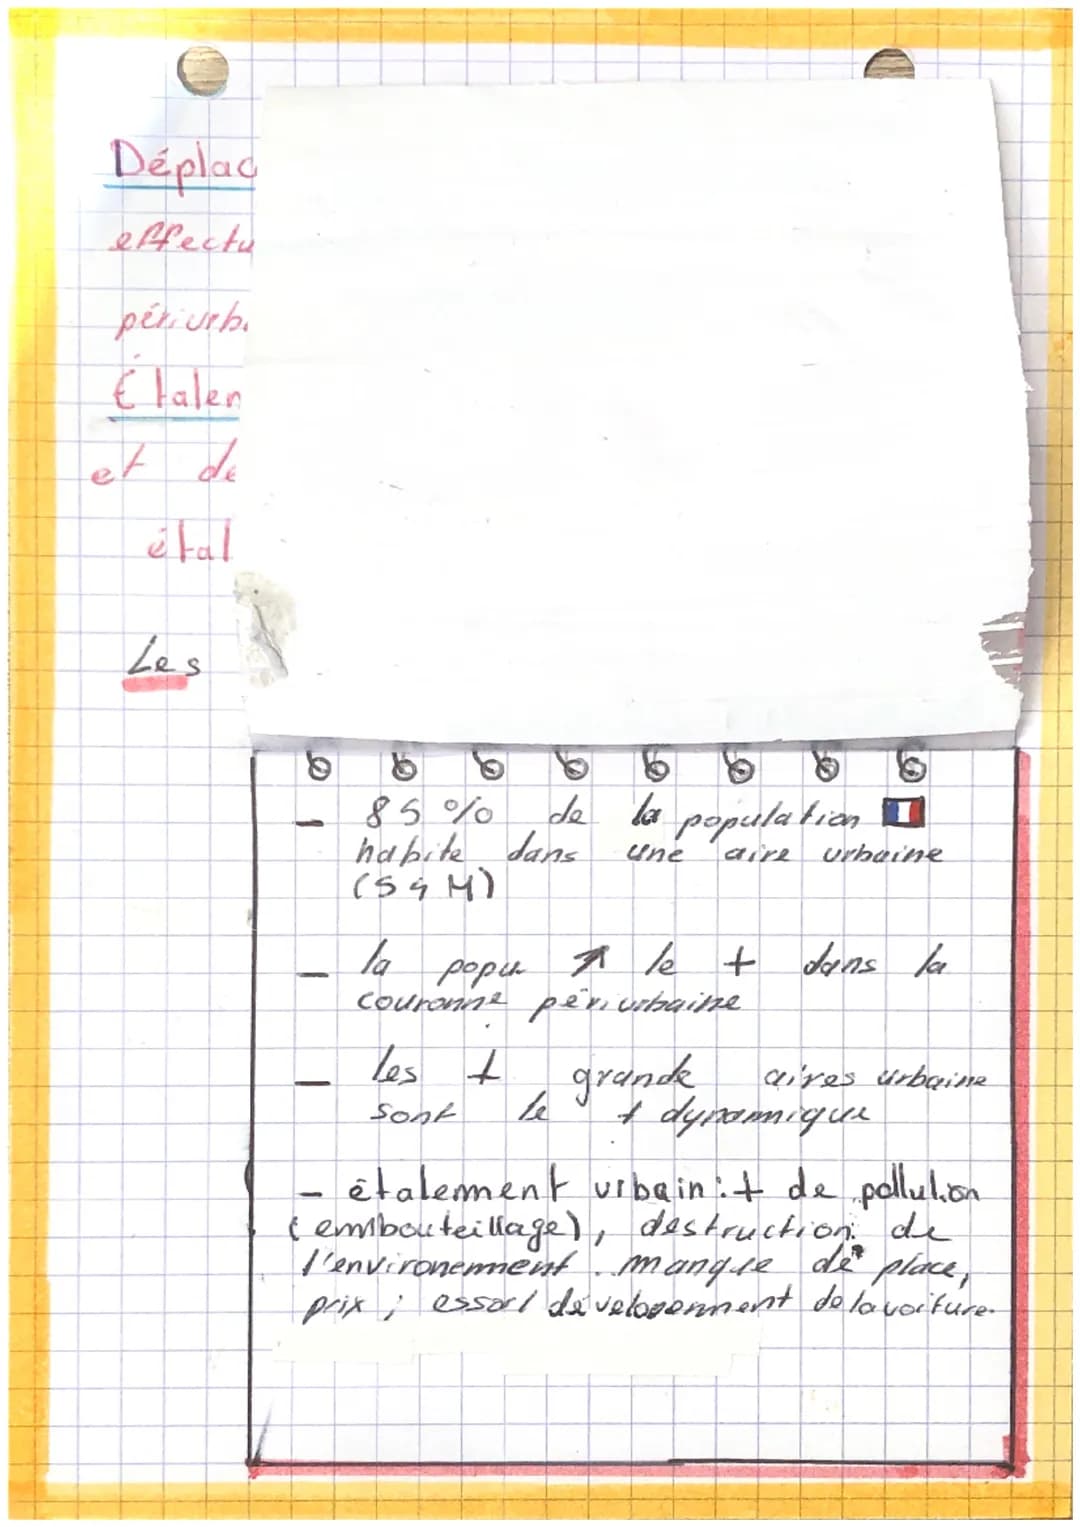 Déplac
effectu
périurb
Étalen
et de
étal
Les
- 85% de la population 🇫🇷
habite dans une aire urbaine
(54 M)
- la popu ↗ le + dans la
couronne périurbaine
- les + grande aires urbaine
sont le + dynamique
- étalement urbain : + de pollution
(embouteillage), destruction de
l'environement. manque de place,
prix ; essorl développenment de la voiture.